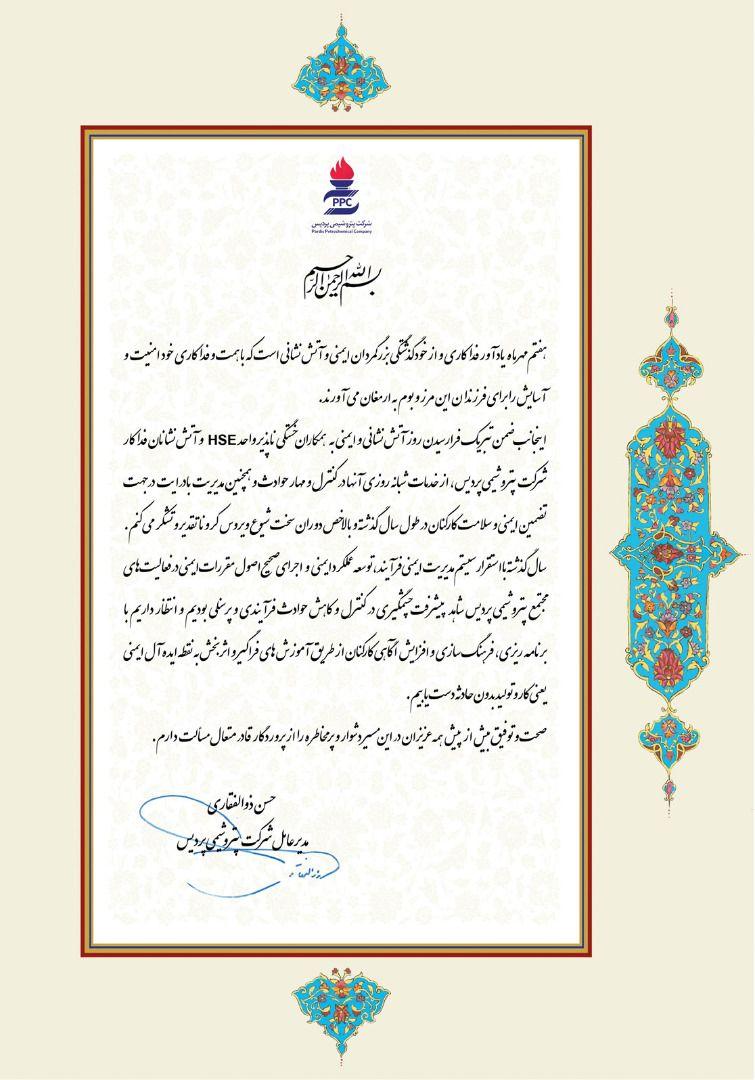 PPC
شرکت پتروشیمی پردیس
Pardis Petrochemical Company
بسم الله الرحمن الرحیم
هفتم مهرماه یادآور فداکاری و از خودگذشتگی بزرگمردان ایمنی و آتش نشانی است که با همت و فداکاری خود امنیت و
آسایش را برای فرزندان این مرز و بوم به ارمغان می آورند.
اینجانب ضمن تبریک فرارسیدن روز آتش نشانی و ایمنی به همکاران خستگی ناپذیر واحد HSE و آتش نشانان فداکار
شرکت پتروشیمی پردیس، از خدمات شبانه روزی آنها در کنترل و مهار حوادث و همچنین مدیریت با درایت در جهت
تضمین ایمنی و سلامت کارکنان در طول سال گذشته و بالاخص دوران سخت شیوع ویروس کرونا تقدیر و تشکر می کنم.
سال گذشته با استقرار سیستم مدیریت ایمنی فرآیند، توسعه عملکرد ایمنی و اجرای صحیح اصول مقررات ایمنی در فعالیت های
مجتمع پتروشیمی پردیس شاهد پیشرفت چشمگیری در کنترل و کاهش حوادث فرآیندی و پرسنلی بودیم و انتظار داریم با
برنامه ریزی، فرهنگ سازی و افزایش آگاهی کارکنان از طریق آموزش های فراگیر و اثربخش به نقطه ایده آل ایمنی
یعنی کار و تولید بدون حادثه دست یابیم.
صحت و توفیق بیش از پیش همه عزیزان در این مسیر دشوار و پرمخاطره را از پروردگار قادر متعال مسألت دارم.
حسن ذوالفقاری
مدیرعامل شرکت پتروشیمی پردیس